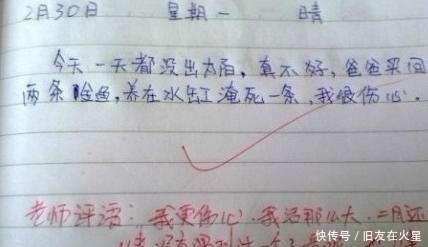 2月30日 星期一 晴
今天一天都没出太阳,真不好,爸爸买回
两条鱼,养在水缸淹死一条,我很伤心.
老师评语:我更伤心.我活那么大.二月还
快传号 / 旧友在火星